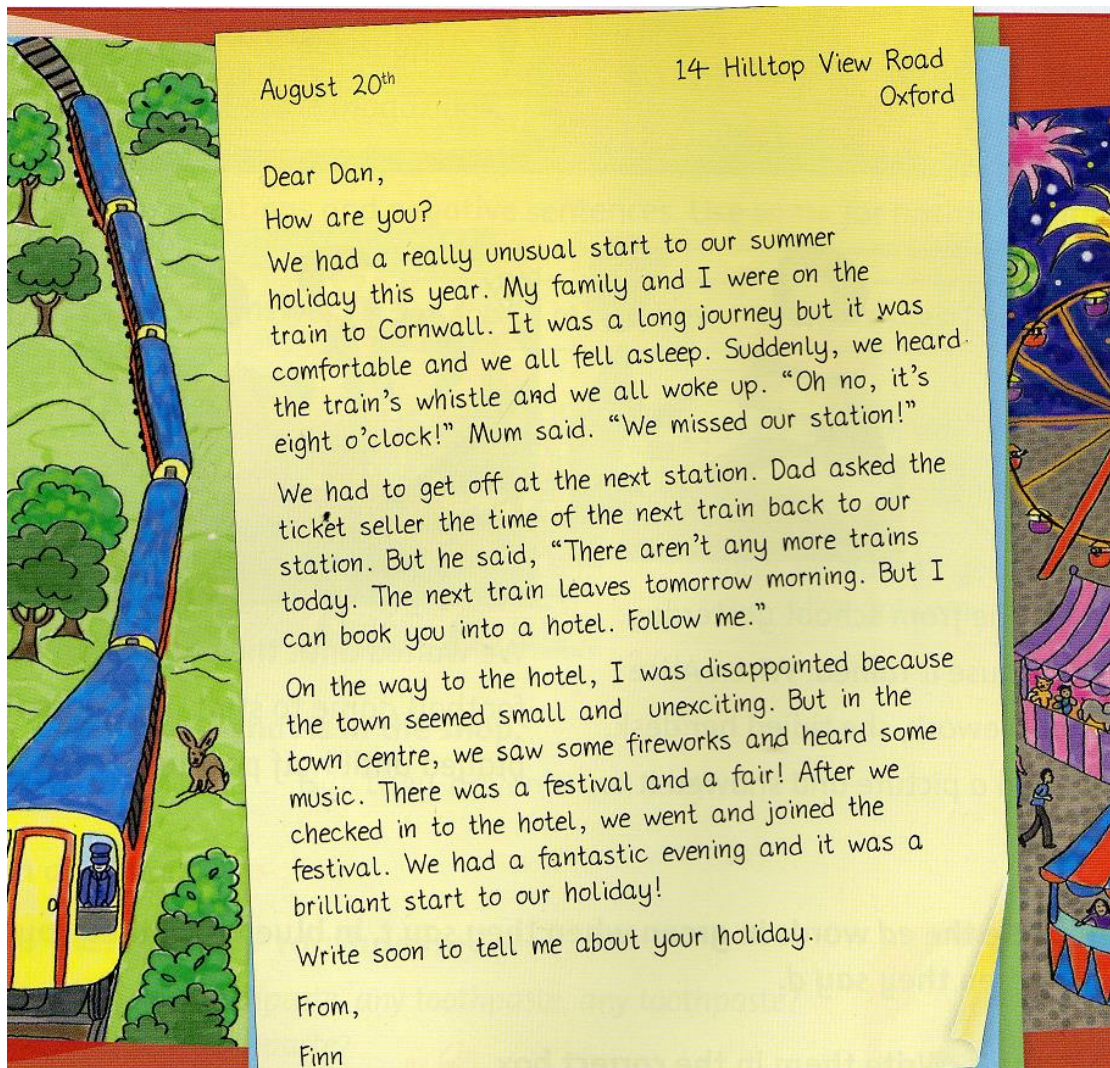 August 20th
14 Hilltop View Road
Oxford
Dear Dan,
How are you?
We had a really unusual start to our summer
holiday this year. My family and I were on the
train to Cornwall. It was a long journey but it was
comfortable and we all fell asleep. Suddenly, we heard
the train's whistle and we all woke up. “Oh no, it's
eight o'clock!” Mum said. “We missed our station!”
We had to get off at the next station. Dad asked the
ticket seller the time of the next train back to our
station. But he said, “There aren't any more trains
today. The next train leaves tomorrow morning. But I
can book you into a hotel. Follow me.”
On the way to the hotel, I was disappointed because
the town seemed small and unexciting. But in the
town centre, we saw some fireworks and heard some
music. There was a festival and a fair! After we
checked in to the hotel, we went and joined the
festival. We had a fantastic evening and it was a
brilliant start to our holiday!
Write soon to tell me about your holiday.
From,
Finn